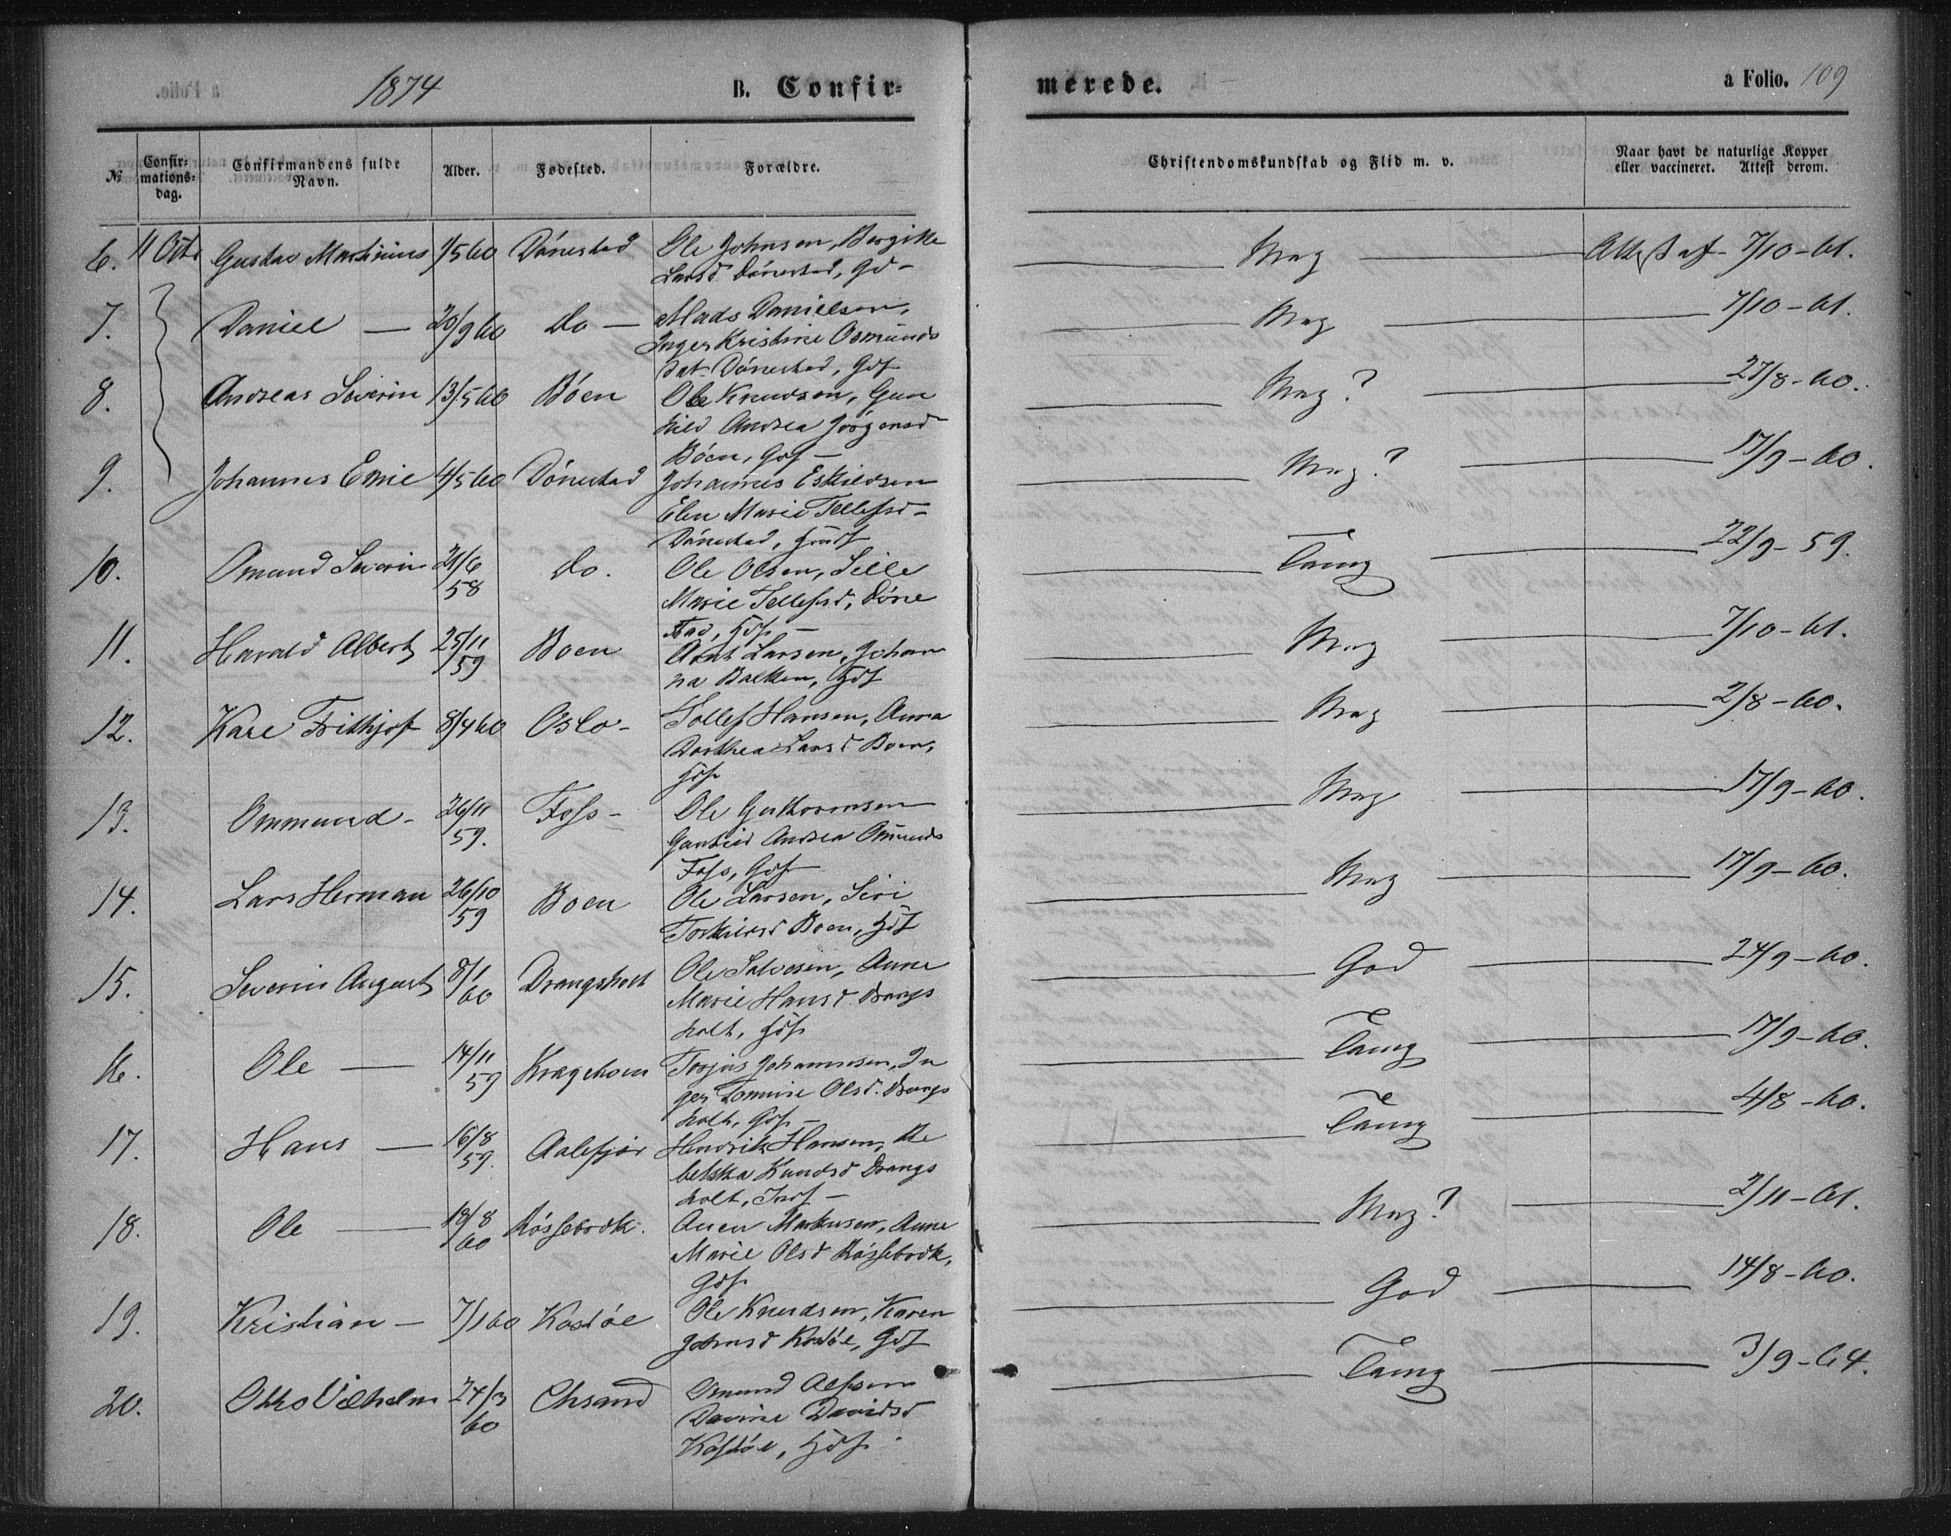 1874
B. Confirmerede.
a Folio. 109
№
Confirmationsdag.
Confirmandens fulde Navn.
Alder.
Fødested.
Forældre.
Christendomskundskab og Flid m. v.
Naar havt de naturlige Kopper eller vaccineret. Attest derom.
6. 11 Octr Gustav Martinius 1/5 60 Dönestad Ole Johnsen, Bergitte
Larsd Dönestad, Gd – Mrg Attest af 7/10–61.
7. Daniel — 20/9 60 Do — Mads Danielsen,
Inger Kristine Osmunds
dat. Dönestad, Gdf Mrg 7/10–61.
8. Andreas Severin 13/5 60 Böen Ole Knudsen, Gun
hild Andrea Jörgensd
Böen, Gdf – Mrg? 27/8–60.
9. Johannes Emil 4/5 60 Dönestad Johannes Eskildsen
Elen Marie Tellefsd –
Dönestad, Mrg? 17/9–60.
10. Omund Severin 21/6 58 Do. Ole Olsen, Sille
Marie Tellefsd, Döne
stad, Hdf – Tamg 22/9–59.
11. Harald Albert 25/11 59 Boen Arnt Larsen, Johan
na Balken, Hdf Mrg 7/10–61.
12. Kare Frithjof 8/4 60 Oslo – Tollef Hansen, Anna
Dorthea Larsd Boen,
Hdf Mrg 2/8–60.
13. Ommund – 26/11 59. Foss – Ole Guthormsen
Gunhild Andrea Omunds
Foss, Gdf Mrg 17/9–60.
14. Lars Herman 26/10 59 Boen Ole Larsen, Siri
Torkildsd Boen, Hdf Mrg 17/9–60.
15. Severin August 8/1 60 Drangsholt Ole Salvesen, Anne
Marie Hansd. Drangs
holt, Hdf God 24/9–60.
16. Ole — 14/11 59 Krageholm Torjus Johannesen, In
ger Tomine Olsd. Drangs
holt, Gdf – Tamg 17/9–60.
17. Hans — 16/8 59. Aalefjær Hendrik Hansen, Re
bekka Knudsd Drangs
holt, – Tamg 4/8–60.
18. Ole — 18/8 60 Røssebrodk. Markusen, Anne
Marie Olsd Røssebrodk,
Gdf Mrg? 2/11–61.
19. Kristian – 7/1 60 Kostöl Ole Knudsen, Karen
Johnsd Kostöl, Gdf God 14/8–60.
20. Otto Vilhelm 24/3 60 Chsand Omund Alfsen
Davine Davidsd
Kostöl, Hdf. Tamg 3/9–64.